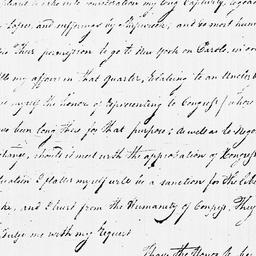 into consideration my long Captivity,
Losses, and sufferings by Imprison, and do most hum
their permission to go to New York on Parole, in or
tle my affairs in that quarter, relating to an Uncles
myself the honor of representing to Congress (whose
been long there for that purpose; as well as to nego
change, should it meet with the approbation of Congress
I flatter myself will be a sanction for the libe
and I trust from the Humanity of Congress, they
dulge me with my Request
I have the Honor to be